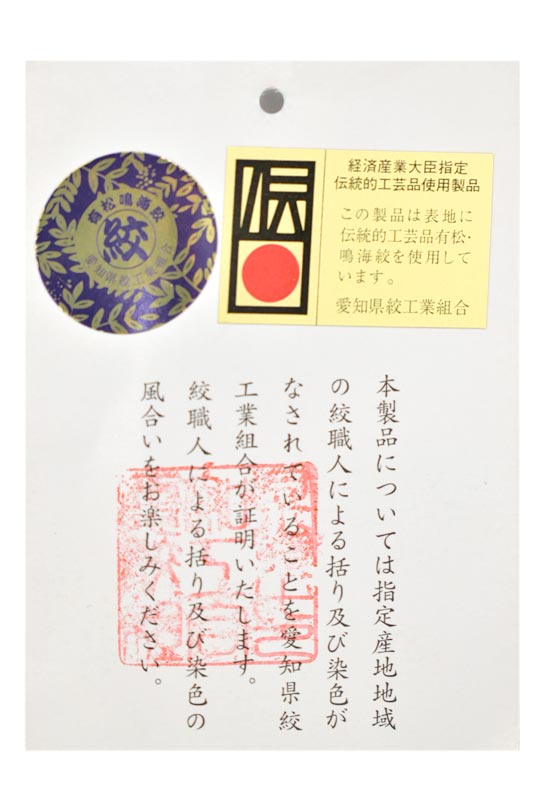 有松鳴海絞
絞
愛知県絞工業組合
伝
経済産業大臣指定
伝統的工芸品使用製品
この製品は表地に
伝統的工芸品有松・
鳴海絞を使用して
います。
愛知県絞工業組合
本製品については指定産地地域
の絞職人による括り及び染色が
なされていることを愛知県絞
工業組合が証明いたします。
絞職人による括り及び染色の
風合いをお楽しみください。